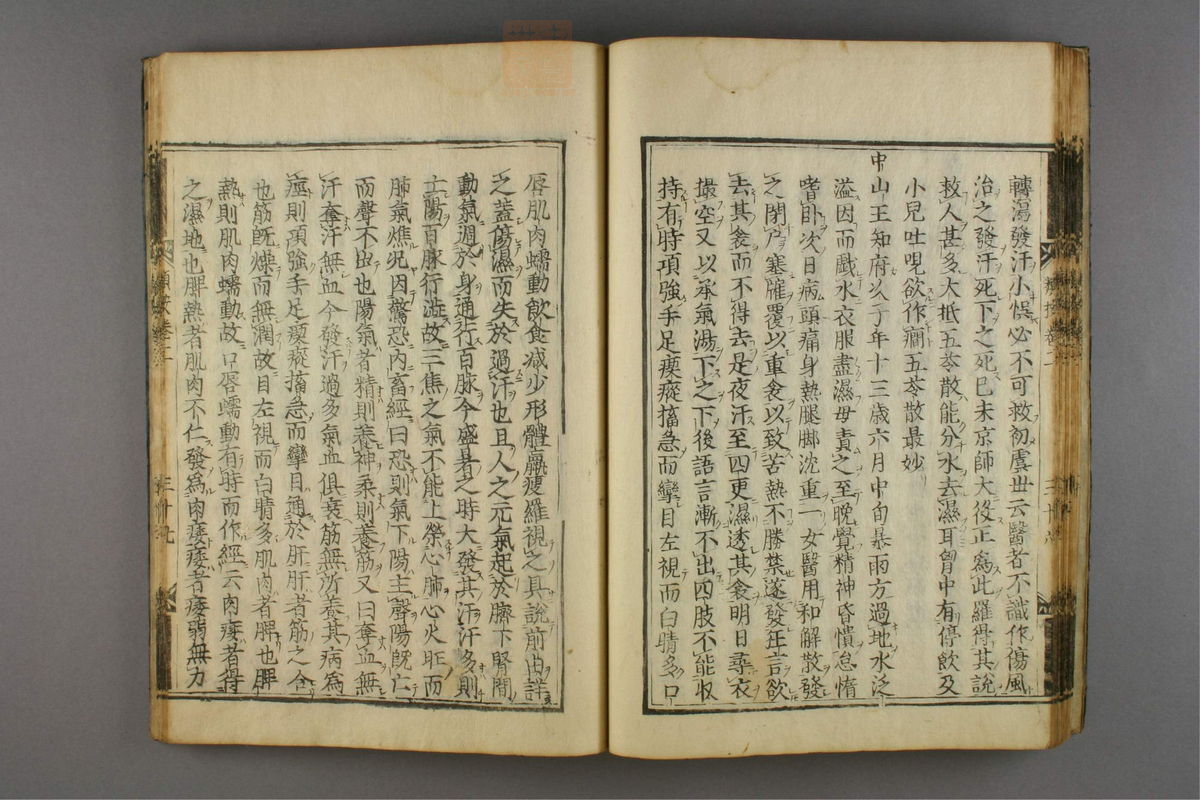 轉瀉發汗小悞必不可救初虞世云醫者不識作傷風
治之發汗死下之死已未京師大役正爲此羅得其說
救人甚多大抵五苓散能分水去濕耳胷中有停飲及
小兒吐哯欲作癎五苓散最妙
中山王知府次子年十三歲六月中旬暴雨方過地水泛
溢因而戲水衣服盡濕母責之至晚覺精神昏憒怠惰
嗜卧次日病頭痛身熱腿脚沈重一女醫用和解散發
之閉戶塞牖覆以重衾以致苦熱不勝禁遂發狂言欲
去其衾而不得去是夜汗至四更濕透其衾明日尋衣
撮空又以承氣湯下之下後語言漸不出四肢不能收
持有時項強手足瘈瘲搐急而攣目左視而白睛多口
唇肌肉蠕動飲食減少形體羸瘦羅視之具說前由詳
之蓋傷濕而失於過汗也且人之元氣起於臍下腎間
動氣週於身通行百脉今盛暑之時大發其汗汗多則
亡陽百脉行澁故三焦之氣不能上榮心肺心火旺而
肺氣燋况因驚恐內畜經曰恐則氣下陽主聲陽旣亡
而聲不出也陽氣者精則養神柔則養筋又曰奪血無
汗奪汗無血今發汗過多氣血俱衰筋無所養其病爲
痙則項強手足瘈瘲搐急而攣目通於肝肝者筋之合
也筋旣燥而無潤故目左視而白睛多肌肉者脾也脾
熱則肌肉蠕動故口唇蠕動有時而作經云肉痿者得
之濕地也脾熱者肌肉不仁發爲肉痿痿者痿弱無力